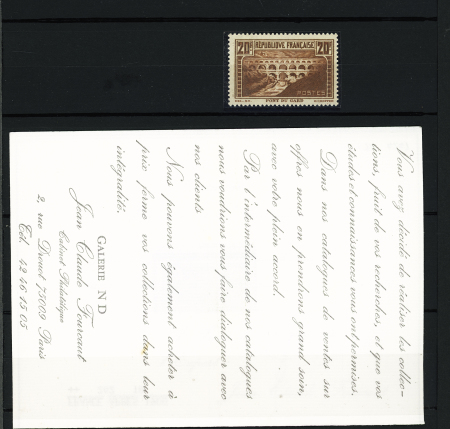 20F RÉPUBLIQUE FRANÇAISE 20F
POSTES
PONT DU GARD
Vous avez décidé de réaliser les collec-
tions, fruit de vos recherches, et que vos
études et connaissances vous ont permises.
Dans nos catalogues de ventes sur
offres nous en prendrons grand soin,
avec votre plein accord.
Par l'intermédiaire de nos catalogues
nous voudrions vous faire dialoguer avec
nos clients
Nous pouvons également acheter à
prix ferme vos collections dans leur
intégralité.
GALERIE N D
Jean Claude Fourcaut
Cabinet Philatélique
2, rue Drouot 75009 Paris
Tél. 42 46 15 05